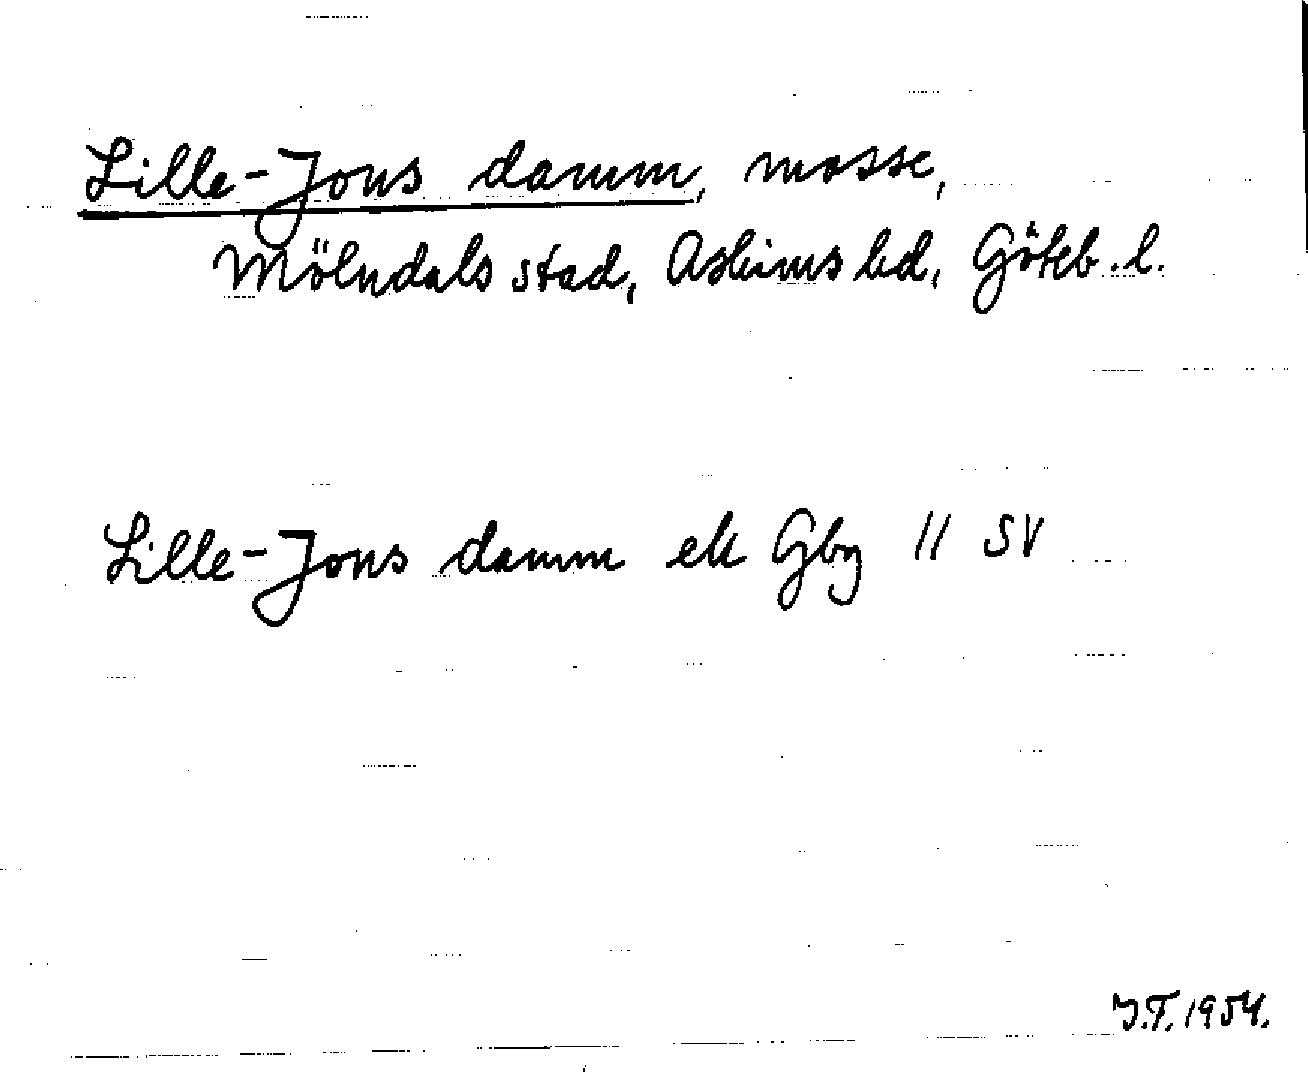 Lille-Jons damm, mosse,
Mölndals stad, Askims hd, Göteb. l.
Lille-Jons damm ek Gbg 11 SV
J.T. 1954.